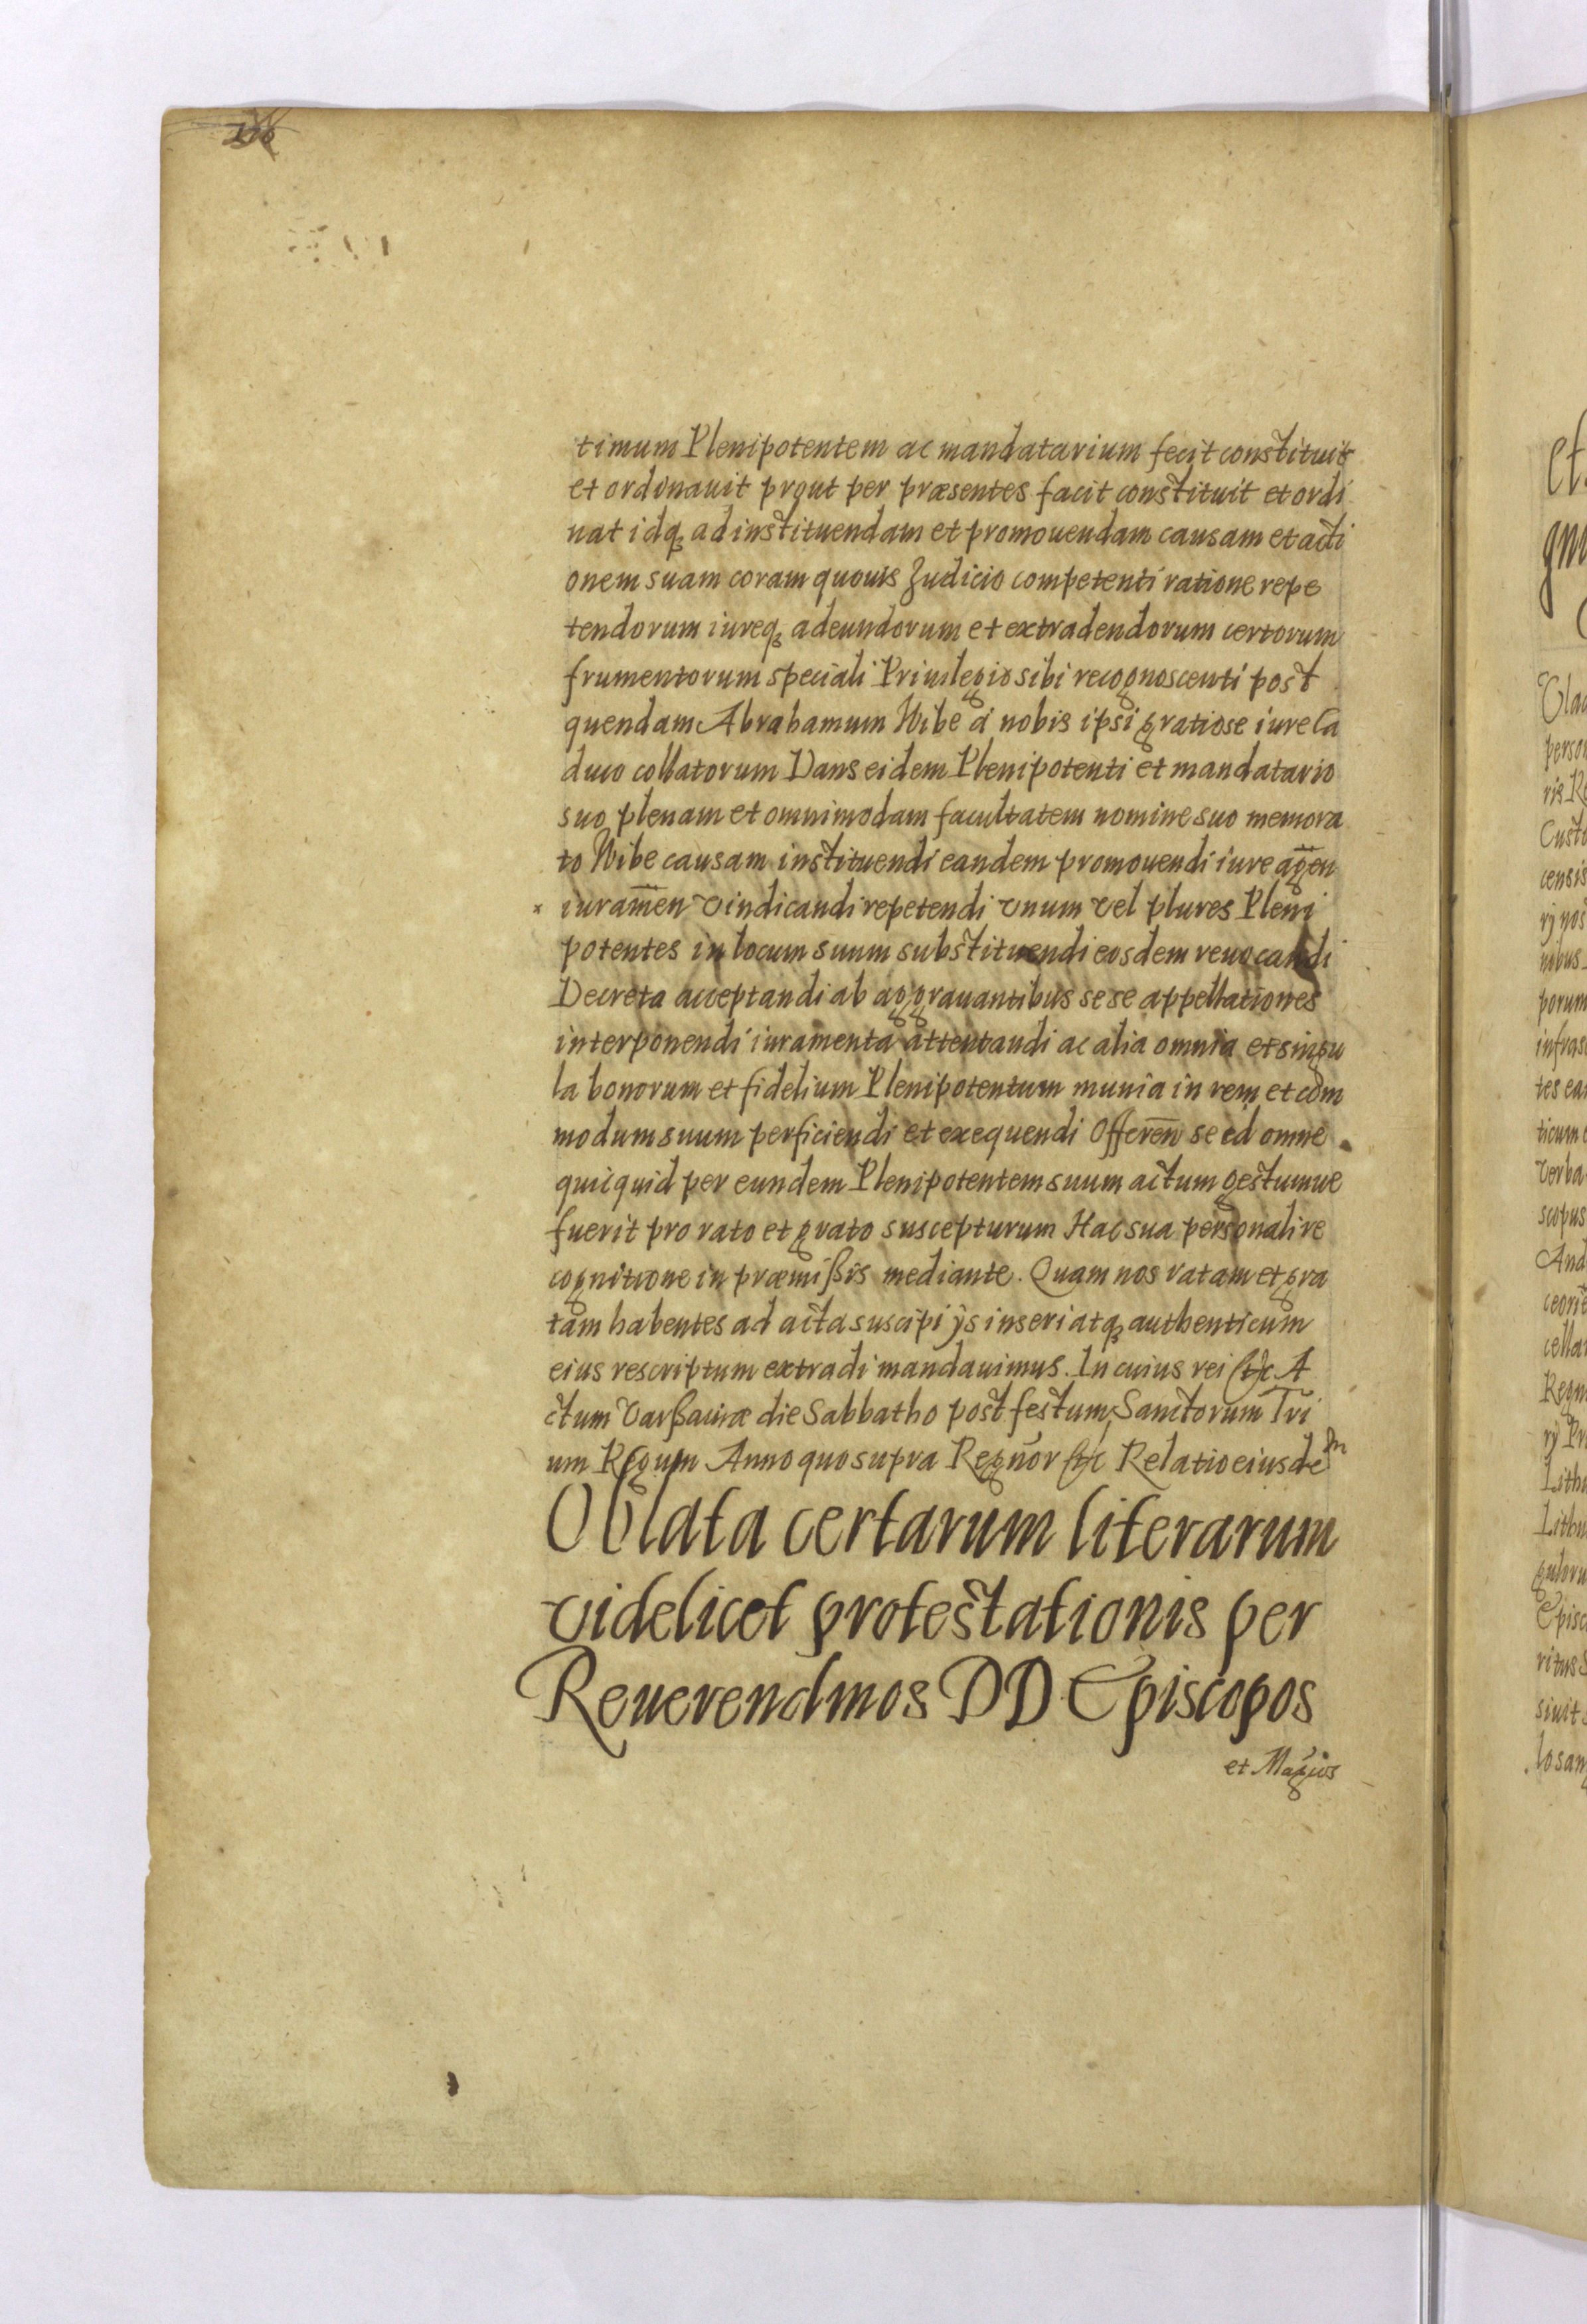 timum Plenipotentem ac mandatarium fecit constituit
et ordinauit prout per præsentes facit constituit et ordi
nat idq₃ ad instituendam et promouendam causam et acti
onem suam coram quouis Judicio competenti ratione repe
tendorum iureq₃ adeundorum et extradendorum certorum
frumentorum speciali Priuilegio sibi recognoscenti post
quendam Abrahamum Wibe á nobis ipsi gratiose iure ca
duco collatorum Dans eidem Plenipotenti et mandatario
suo plenam et omnimodam facultatem nomine suo memora
to Wibe causam instituendi eandem promouendi iure agen̄
iuramen̄ vindicandi repetendi vnum vel plures Pleni
potentes in locum suum substituendi eosdem reuocandi
Decreta acceptandi ab aggrauantibus sese appellationes
interponendi iuramenta attentandi ac alia omnia et singu
la bonorum et fidelium Plenipotentum munia in rem et com
modum suum perficiendi et exequendi Offeren̄ se id omne
quicquid per eundem Plenipotentem suum actum gestumue
fuerit pro rato et grato suscepturum Hac sua personali re
cognitione in præmißis mediante. Quam nos ratam et gra
tam habentes ad acta suscipi ÿs inseri atq₃ authenticum
eius rescriptum extradi mandauimus. In cuius rei etc A
ctum Varßauiæ die Sabbatho post festum Sanctorum Tri
um Regum Anno quo supra Regnor etc Relatio eiusdem
Oblata certarum literarum
videlicet protestationis per
Reuerendmos DD Episcopos
et Mag̃cos